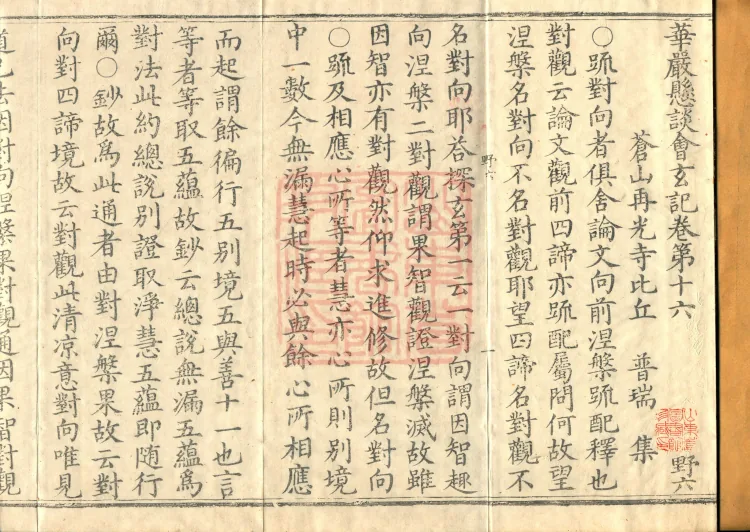 華嚴懸談會玄記卷第十六 野六
蒼山再光寺比丘 普瑞 集
○䟽對向者俱舍論文向前涅槃䟽配釋也
對觀云論文觀前四諦亦䟽配屬問何故望
涅槃名對向不名對觀耶望四諦名對觀不
名對向耶荅探玄第一云一對向謂因智趣
向涅槃二對觀謂果智觀證涅槃滅故雖
因智亦有對觀然仰求進修故但名對向
○䟽及相應心所等者慧亦心所則別境
中一數今無漏慧起時必與餘心所相應
而起謂餘徧行五別境五與善十一也言
等者等取五蘊故鈔云總說無漏五蘊爲
對法此約總說別證取淨慧五蘊即隨行
爾○鈔故爲此通者由對涅槃果故云對
向對四諦境故云對觀此清凉意對向唯見
道已去因對向涅槃果對觀通因果智對觀
野六
一